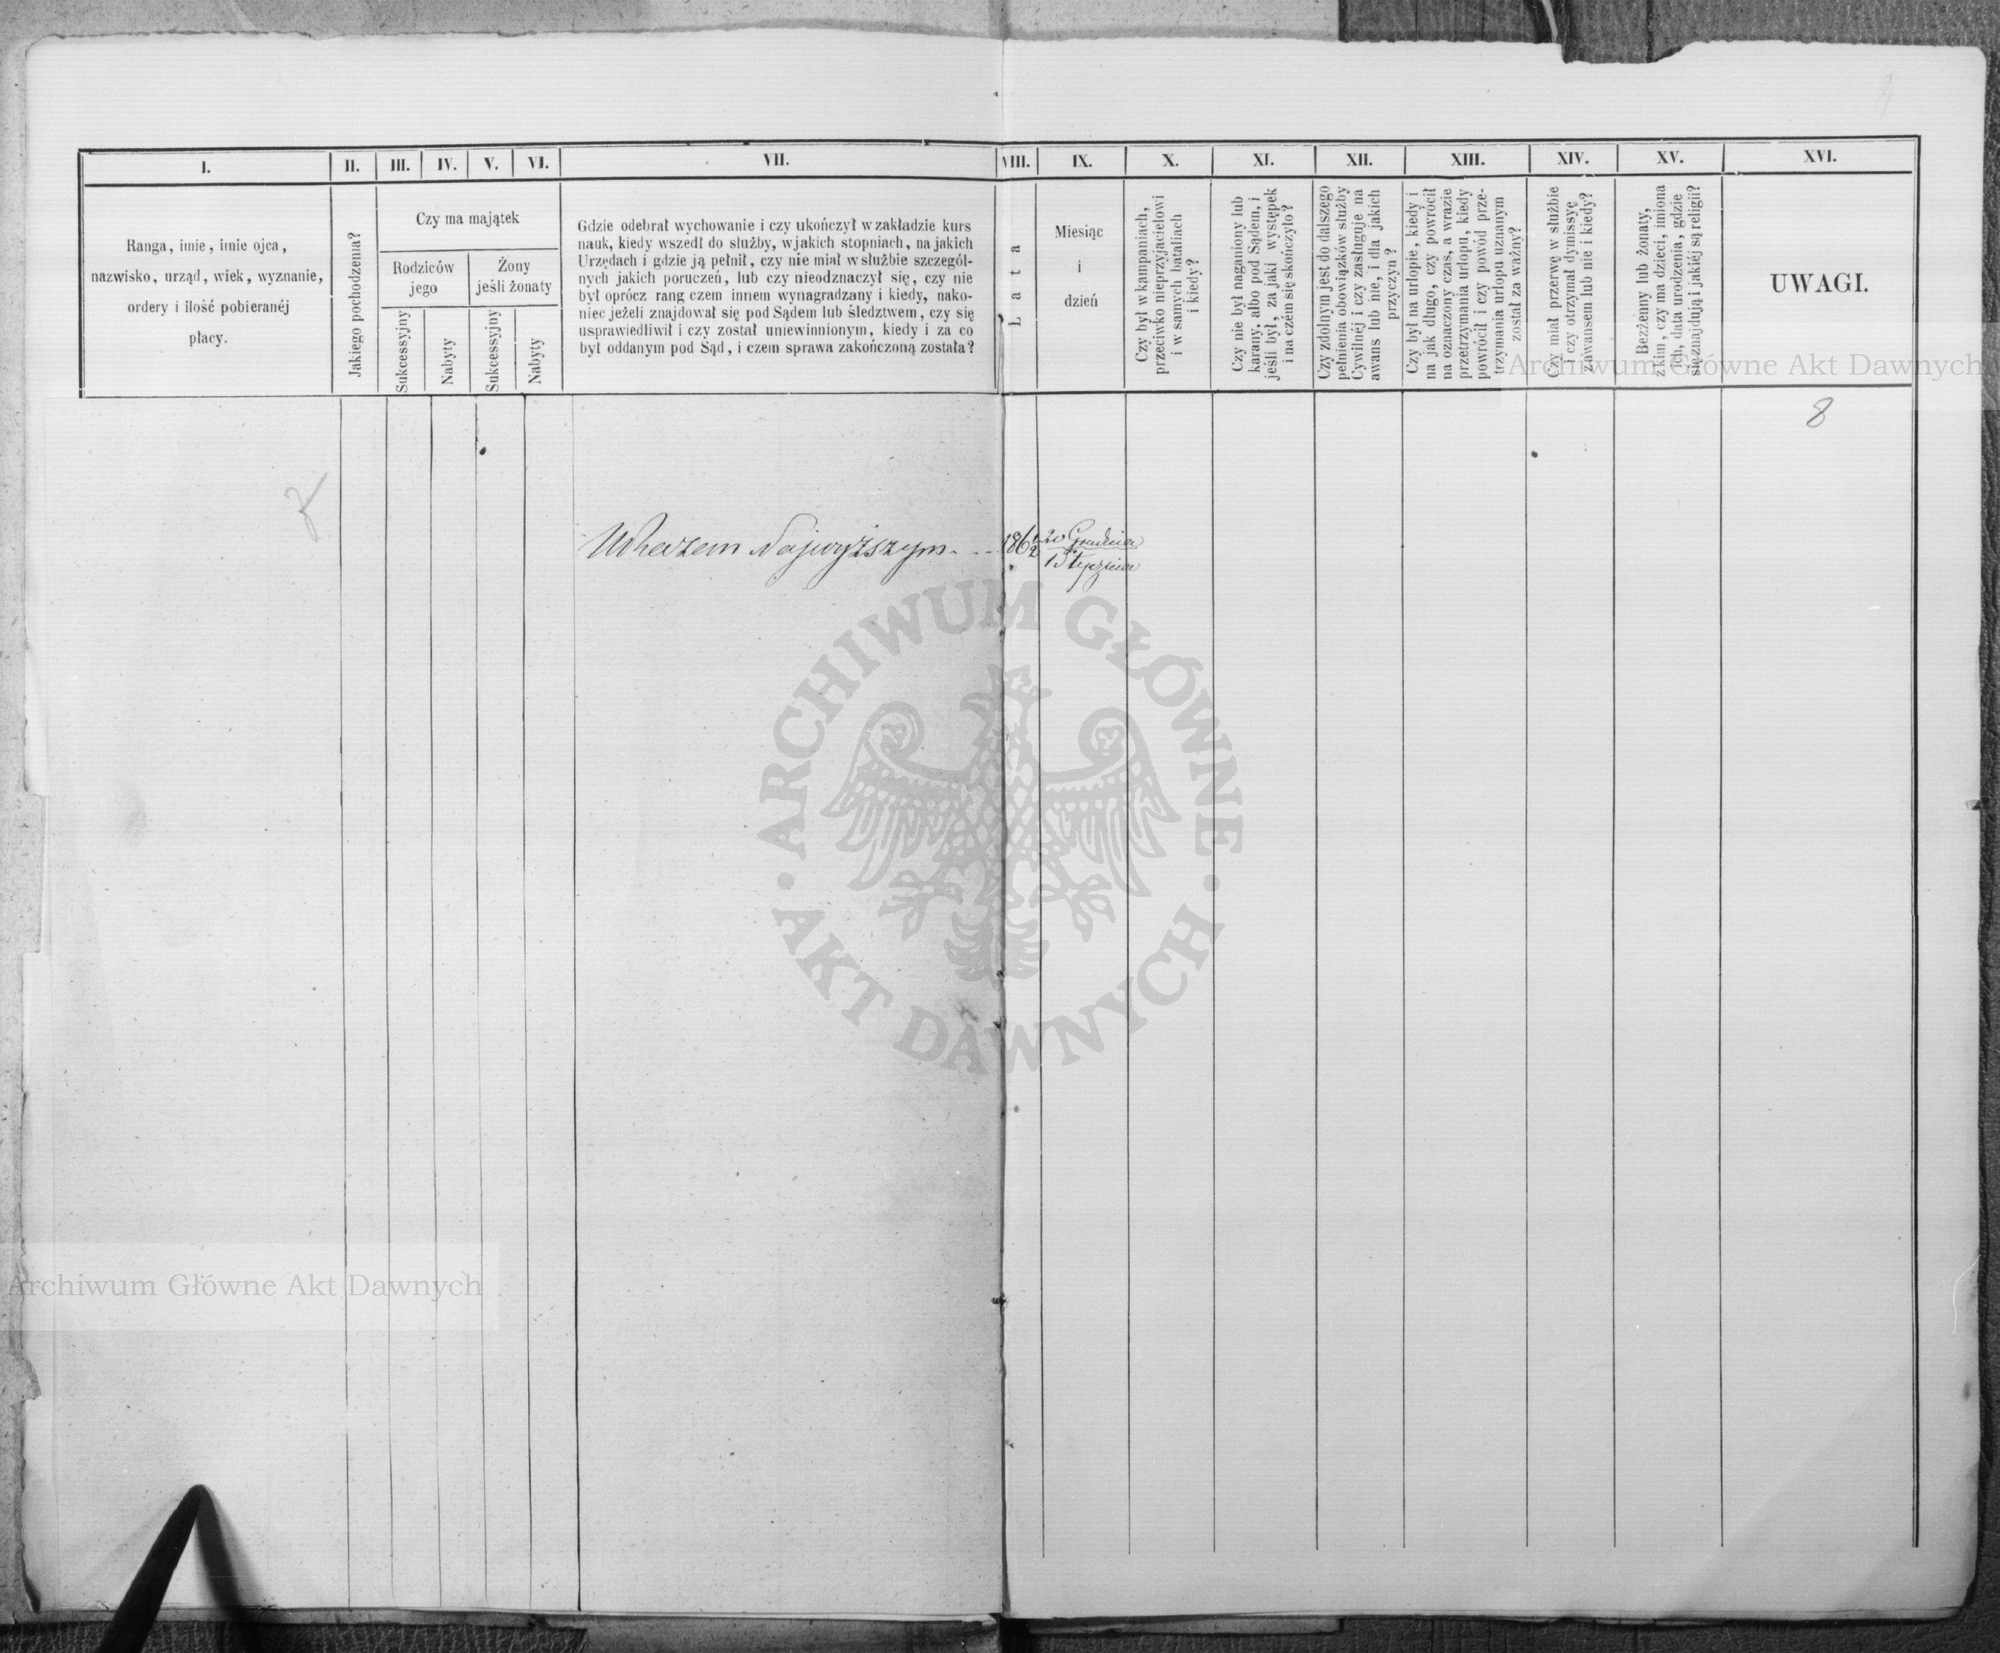 I. II. III. IV. V. VI. VII. VIII. IX. X. XI. XII. XIII. XIV. XV. XVI.
Ranga, imie, imie ojca,
nazwisko, urząd, wiek, wyznanie,
ordery i ilość pobieranéj
płacy.
Jakiego pochodzenia?
Czy ma majątek
Rodziców
jego
Żony
jeśli żonaty
Sukcessyjny
Nabyty
Sukcessyjny
Nabyty
Gdzie odebrał wychowanie i czy ukończył w zakładzie kurs
nauk, kiedy wszedł do służby, w jakich stopniach, na jakich
Urzędach i gdzie ją pełnił, czy nie miał w służbie szczegól-
nych jakich poruczeń, lub czy nieodznaczył się, czy nie
był oprócz rang czem innem wynagradzany i kiedy, nako-
niec jeżeli znajdował się pod Sądem lub śledztwem, czy się
usprawiedliwił i czy został uniewinnionym, kiedy i za co
był oddanym pod Sąd, i czem sprawa zakończoną została?
Lata
Miesiąc
i
dzień
Czy był w kampaniach,
przeciwko nieprzyjacielowi
i w samych bataliach
i kiedy?
Czy nie był naganiony lub
karany, albo pod Sądem, i
jeśli był, za jaki występek
i na czém się skończyło?
Czy zdolnym jest do dalszego
pełnienia obowiązków służby
Cywilnéj i czy zasługuje na
awans lub nie, i dla jakich
przyczyn?
Czy był na urlopie, kiedy i
na jak długo, czy powrócił
na oznaczony czas, a w razie
przetrzymania urlopu, kiedy
powrócił i czy powód prze-
trzymania urlopu uznanym
został za ważny?
Czy miał przerwę w służbie
i czy otrzymał dymissyę
z awansem lub nie i kiedy?
Bezżenny lub żonaty,
z kim, czy ma dzieci, imiona
ich, data urodzenia, gdzie
się znajdują i jakiéj są religii?
UWAGI.
Archiwum Główne Akt Dawnych
8
Ukazem Najwyższym 186 1/2 20 Grudnia
1 Stycznia
ARCHIWUM GŁÓWNE
AKT DAWNYCH
Archiwum Główne Akt Dawnych